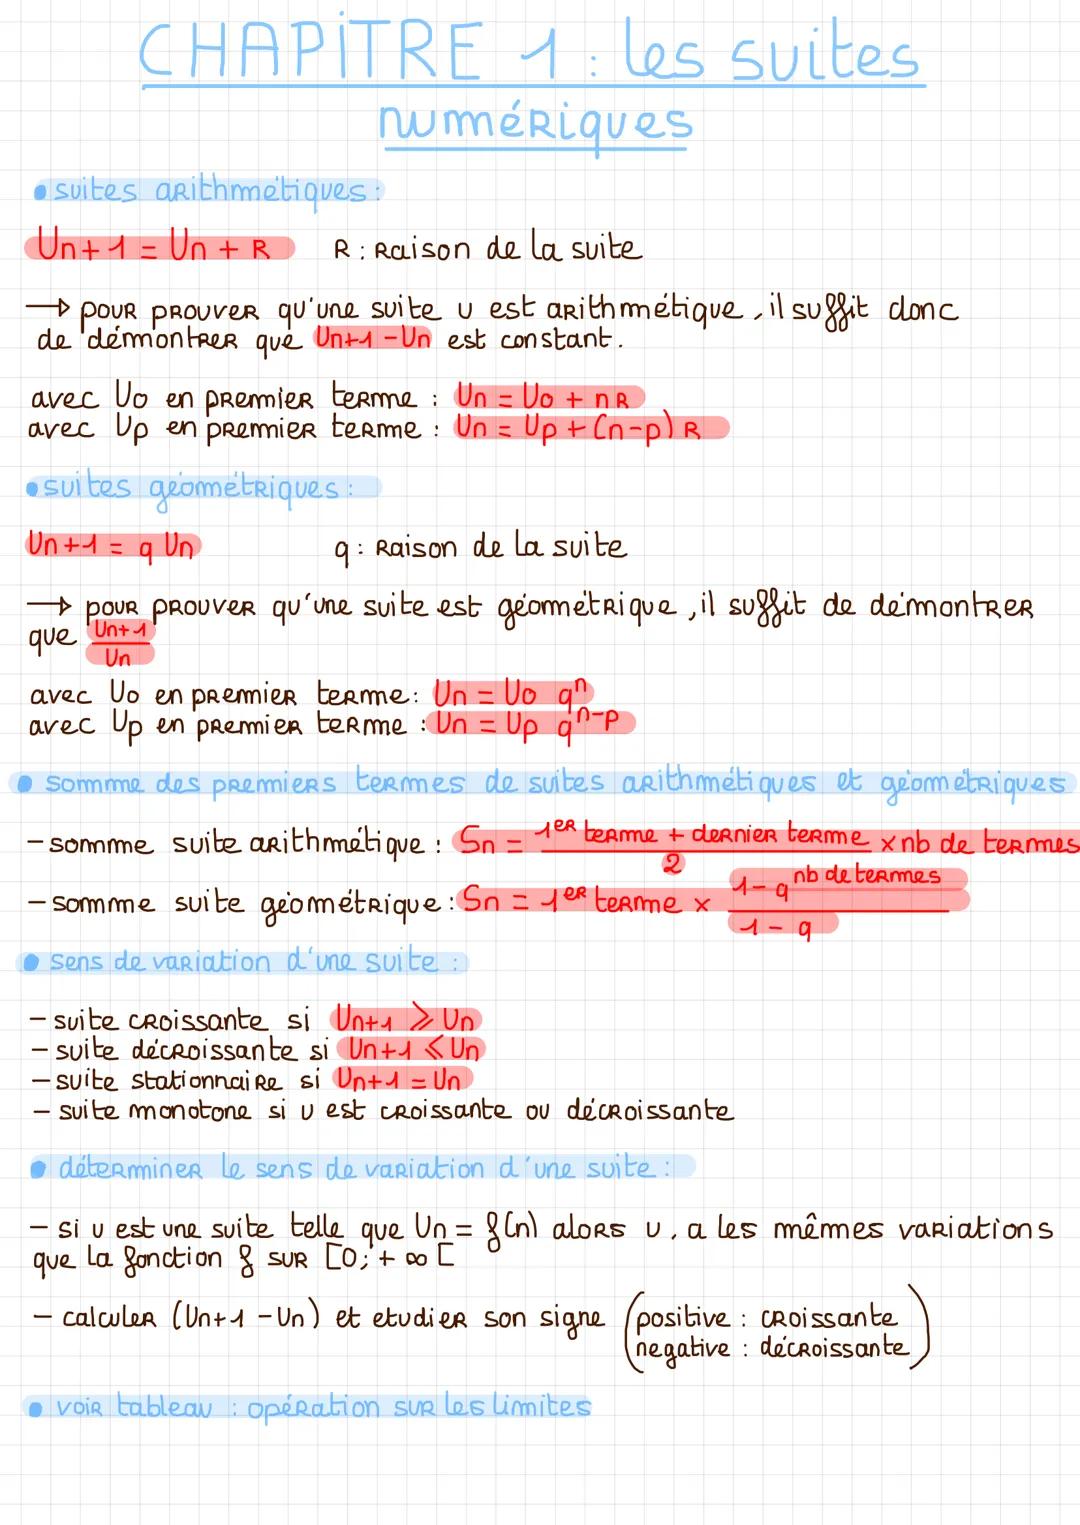 CHAPITRE 1 : les suites
numériques
• suites arithmétiques :
Un+1 = Un + R R : Raison de la suite
→ pour prouver qu'une suite u est arithmétique, il suffit donc
de démontrer que Un+1 - Un est constant.
avec U0 en premier terme : Un = U0 + nR
avec Up en premier terme : Un = Up + (n-p) R
• suites géométriques :
Un+1 = q Un q : Raison de la suite
→ pour prouver qu'une suite est géométrique, il suffit de démontrer
que Un+1/Un
avec U0 en premier terme : Un = U0 q^n
avec Up en premier terme : Un = Up q^n-p
• somme des premiers termes de suites arithmétiques et géométriques
- somme suite arithmétique : Sn = (1er terme + dernier terme)/2 × nb de termes
- somme suite géométrique : Sn = 1er terme × (1 - q^nb de termes)/(1 - q)
• sens de variation d'une suite :
- suite croissante si Un+1 ⩾ Un
- suite décroissante si Un+1 ⩽ Un
- suite stationnaire si Un+1 = Un
- suite monotone si u est croissante ou décroissante
• déterminer le sens de variation d'une suite :
- si u est une suite telle que Un = f(n) alors u, a les mêmes variations
que la fonction f sur [0; +∞[
- calculer (Un+1 - Un) et etudier son signe (positive : croissante
negative : décroissante)
• voir tableau : opération sur les limites